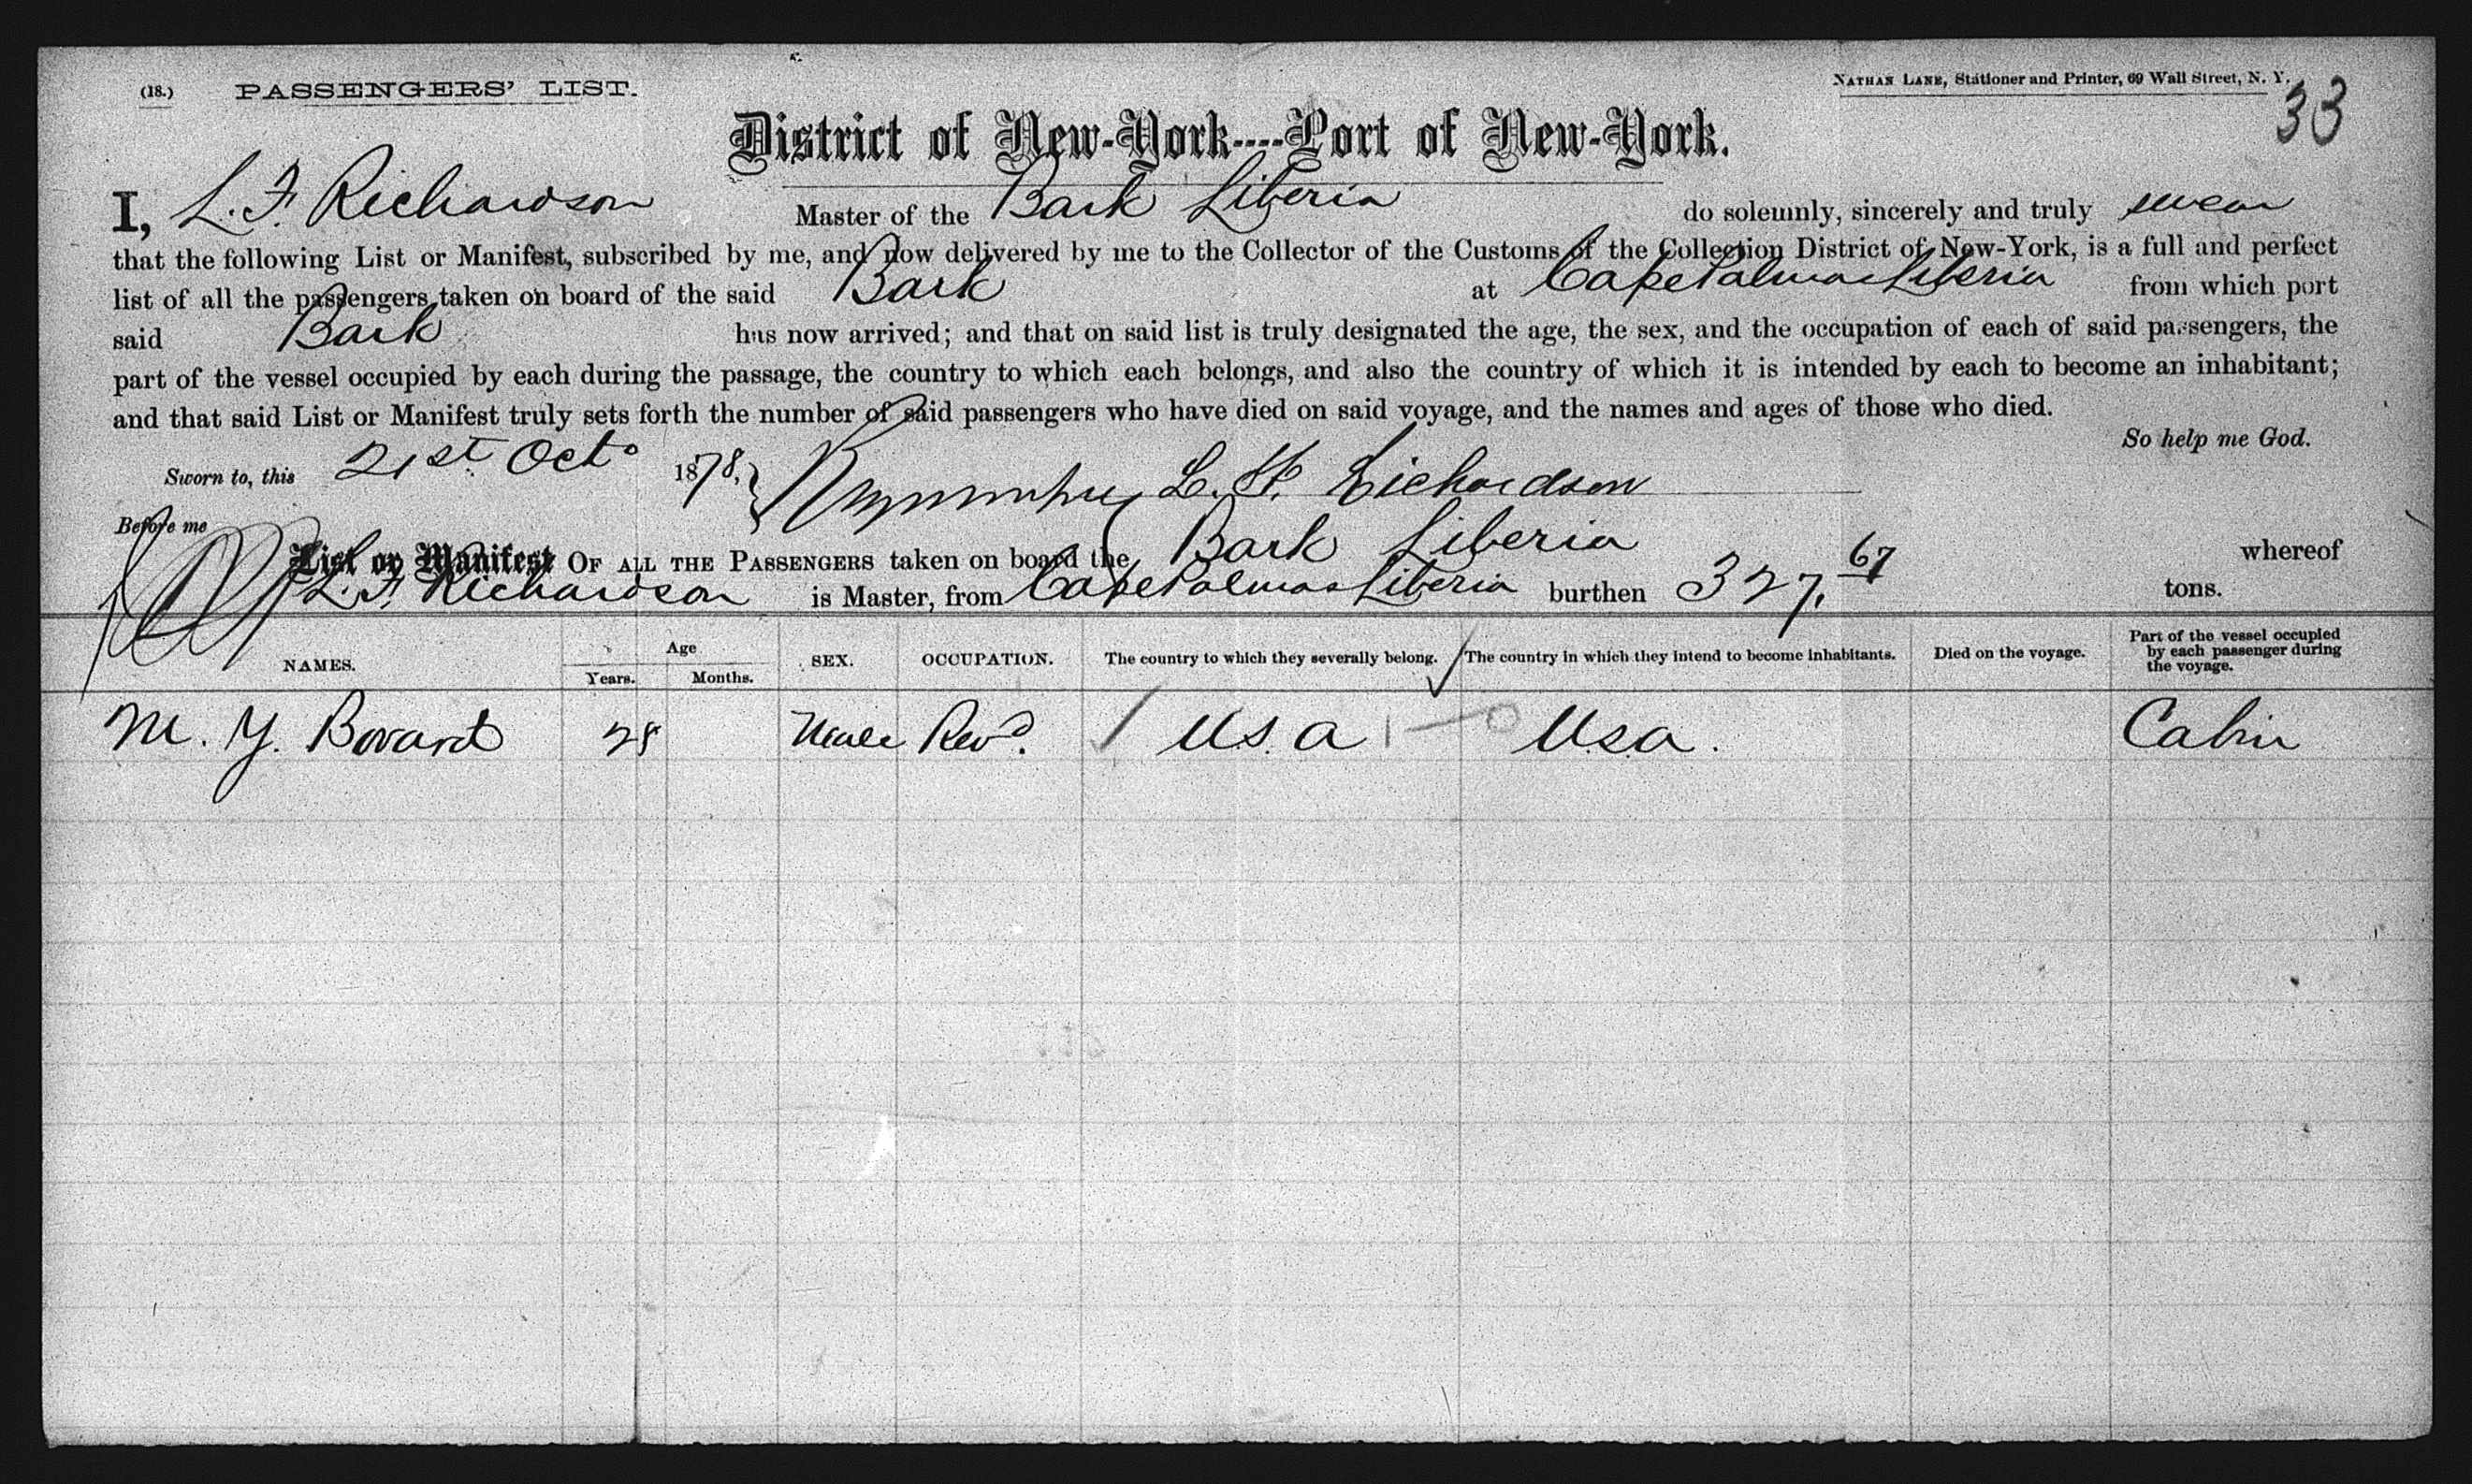 (18.) PASSENGERS' LIST.
NATHAN LANE, Stationer and Printer, 69 Wall Street, N. Y.
33
District of New-York----Port of New-York.
I, L. F. Richardson Master of the Bark Liberia do solemnly, sincerely and truly swear
that the following List or Manifest, subscribed by me, and now delivered by me to the Collector of the Customs of the Collection District of New-York, is a full and perfect
list of all the passengers taken on board of the said Bark at Cape Palmas Liberia from which port
said Bark has now arrived; and that on said list is truly designated the age, the sex, and the occupation of each of said passengers, the
part of the vessel occupied by each during the passage, the country to which each belongs, and also the country of which it is intended by each to become an inhabitant;
and that said List or Manifest truly sets forth the number of said passengers who have died on said voyage, and the names and ages of those who died.
So help me God.
Sworn to, this 21st Oct. 1878, L. F. Richardson
Before me
List or Manifest OF ALL THE PASSENGERS taken on board the Bark Liberia whereof
L. F. Richardson is Master, from Cape Palmas Liberia burthen 327.67 tons.
NAMES. Age Years. Months. SEX. OCCUPATION. The country to which they severally belong. The country in which they intend to become inhabitants. Died on the voyage. Part of the vessel occupied by each passenger during the voyage.
M. Y. Bovard 28 Male Revd. U.S.A U.S.A. Cabin